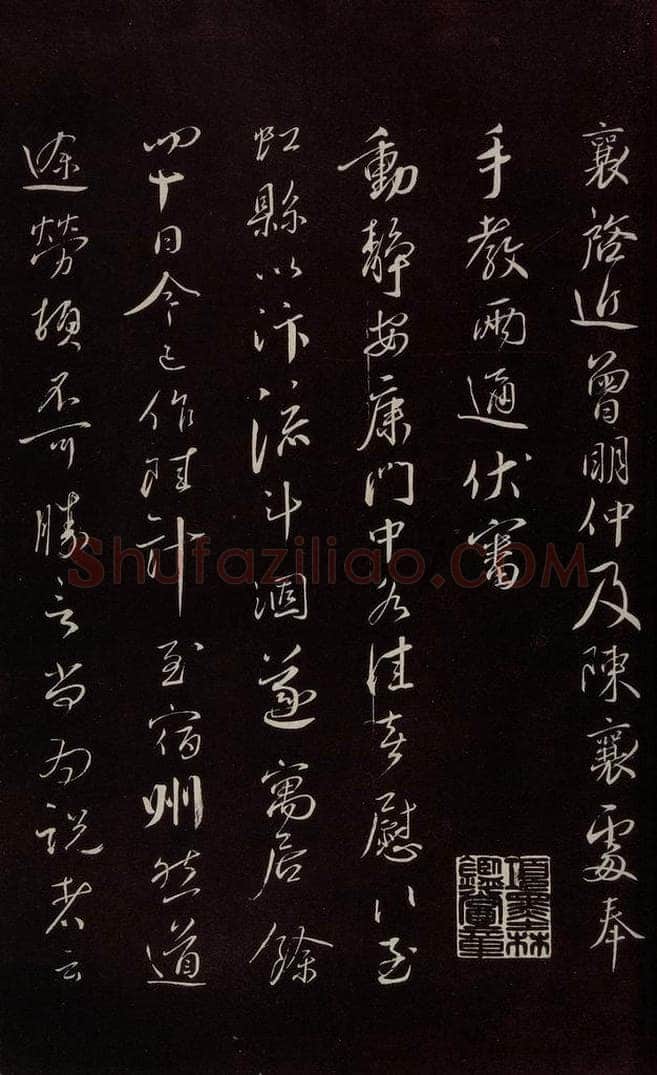 襄啓近曾明仲及陳襄處奉
手教兩通伏審
動靜安康門中各佳喜慰以至
虹縣以汴流斗涸遂寓居餘
四十日今已作陸計至宿州然道
途勞頓不可勝言尚為說者云
項墨林鑑賞章
Shufaziliao.COM